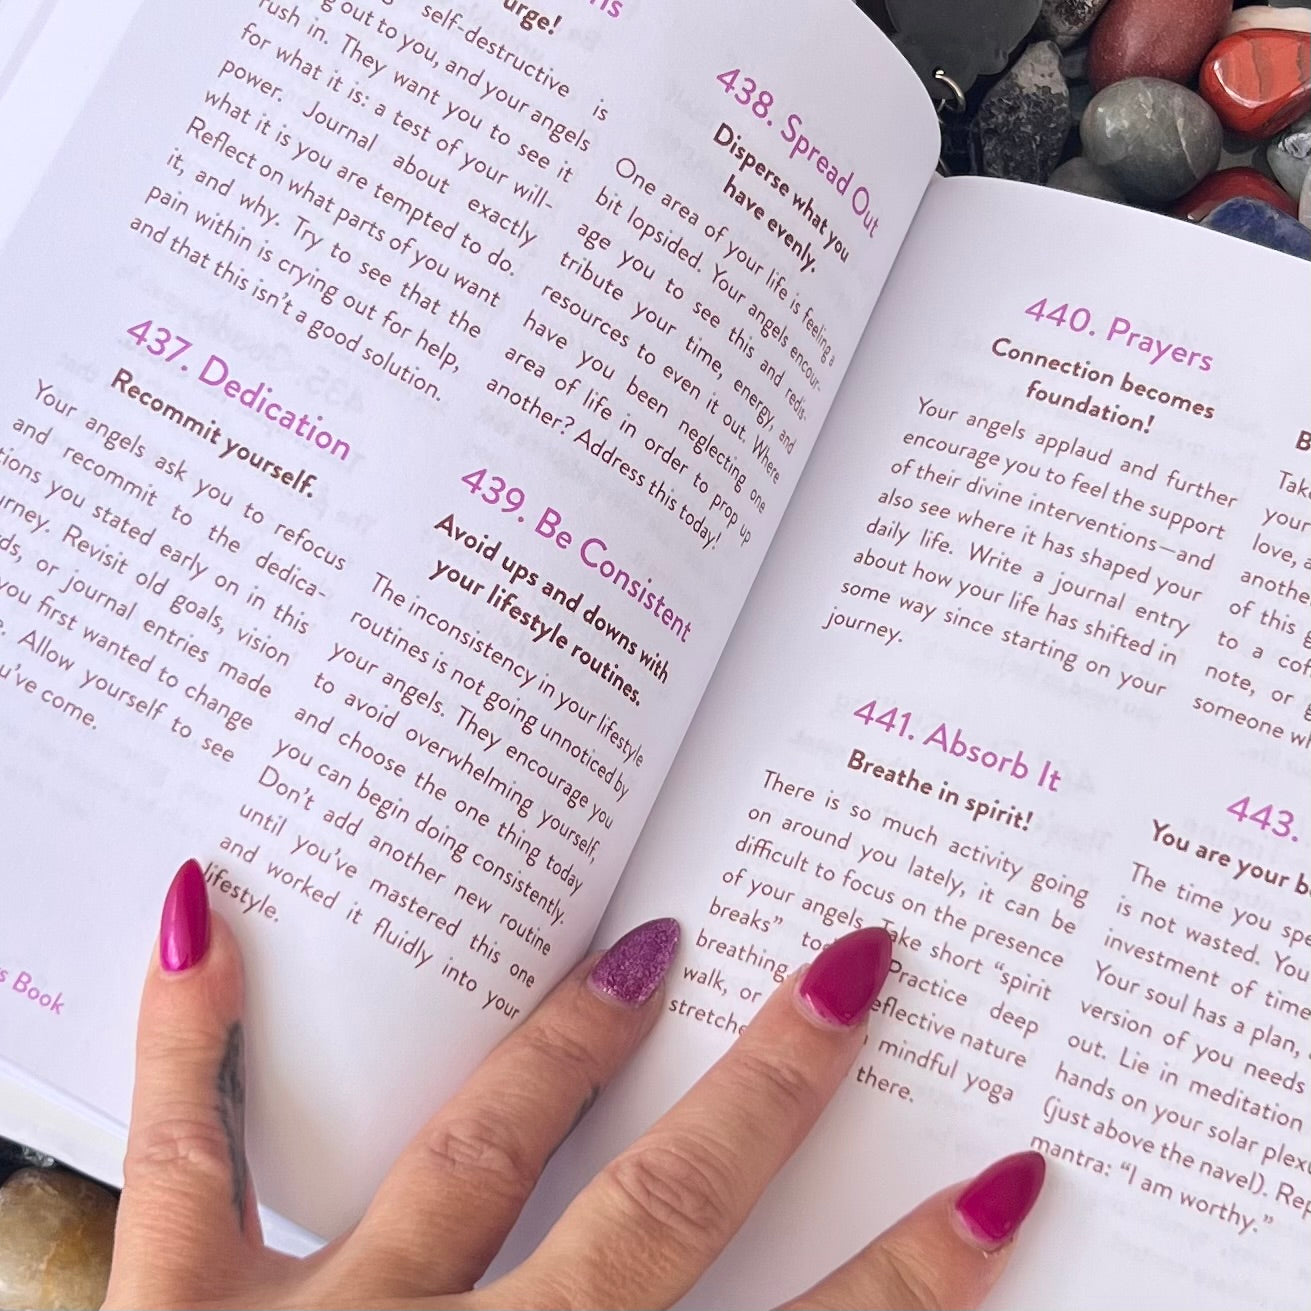 urge!
self-destructive is
g out to you, and your angels
rush in. They want you to see it
for what it is: a test of your will-
power. Journal about exactly
what it is you are tempted to do.
Reflect on what parts of you want
it, and why. Try to see that the
pain within is crying out for help,
and that this isn't a good solution.
437. Dedication
Recommit yourself.
Your angels ask you to refocus
and recommit to the dedica-
tions you stated early on in this
urney. Revisit old goals, vision
ds, or journal entries made
you first wanted to change
Allow yourself to see
u've come.
s Book
438. Spread Out
Disperse what you
have evenly.
One area of your life is feeling a
bit lopsided. Your angels encour-
age you to see this and redis-
tribute your time, energy, and
resources to even it out. Where
have you been neglecting one
area of life in order to prop up
another? Address this today!
439. Be Consistent
Avoid ups and downs with
your lifestyle routines.
The inconsistency in your lifestyle
routines is not going unnoticed by
your angels. They encourage you
to avoid overwhelming yourself,
and choose the one thing today
you can begin doing consistently.
Don't add another new routine
until you've mastered this one
and worked it fluidly into your
lifestyle.
440. Prayers
Connection becomes
foundation!
Your angels applaud and further
encourage you to feel the support
of their divine interventions—and
also see where it has shaped your
daily life. Write a journal entry
about how your life has shifted in
some way since starting on your
journey.
441. Absorb It
Breathe in spirit!
There is so much activity going
on around you lately, it can be
difficult to focus on the presence
of your angels. Take short "spirit
breaks" Practice deep
breathing, eflective nature
walk, or mindful yoga
stretche there.
B
Tak
your
love, a
anothe
of this
to a cof
note, or
someone wh
443.
You are your b
The time you spe
is not wasted. You
investment of time
Your soul has a plan,
version of you needs
out. Lie in meditation
hands on your solar plexu
(just above the navel). Rep
mantra: "I am worthy."